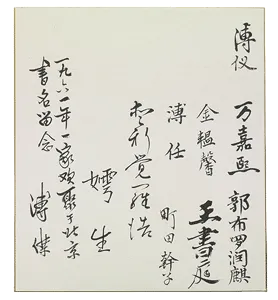 溥仪
万嘉熙
郭布罗润麒
金韫馨
王書庭
溥任
町田幹子
爱新觉罗浩
嫮生
一九六一年一家欢聚于北京
書名留念
溥傑